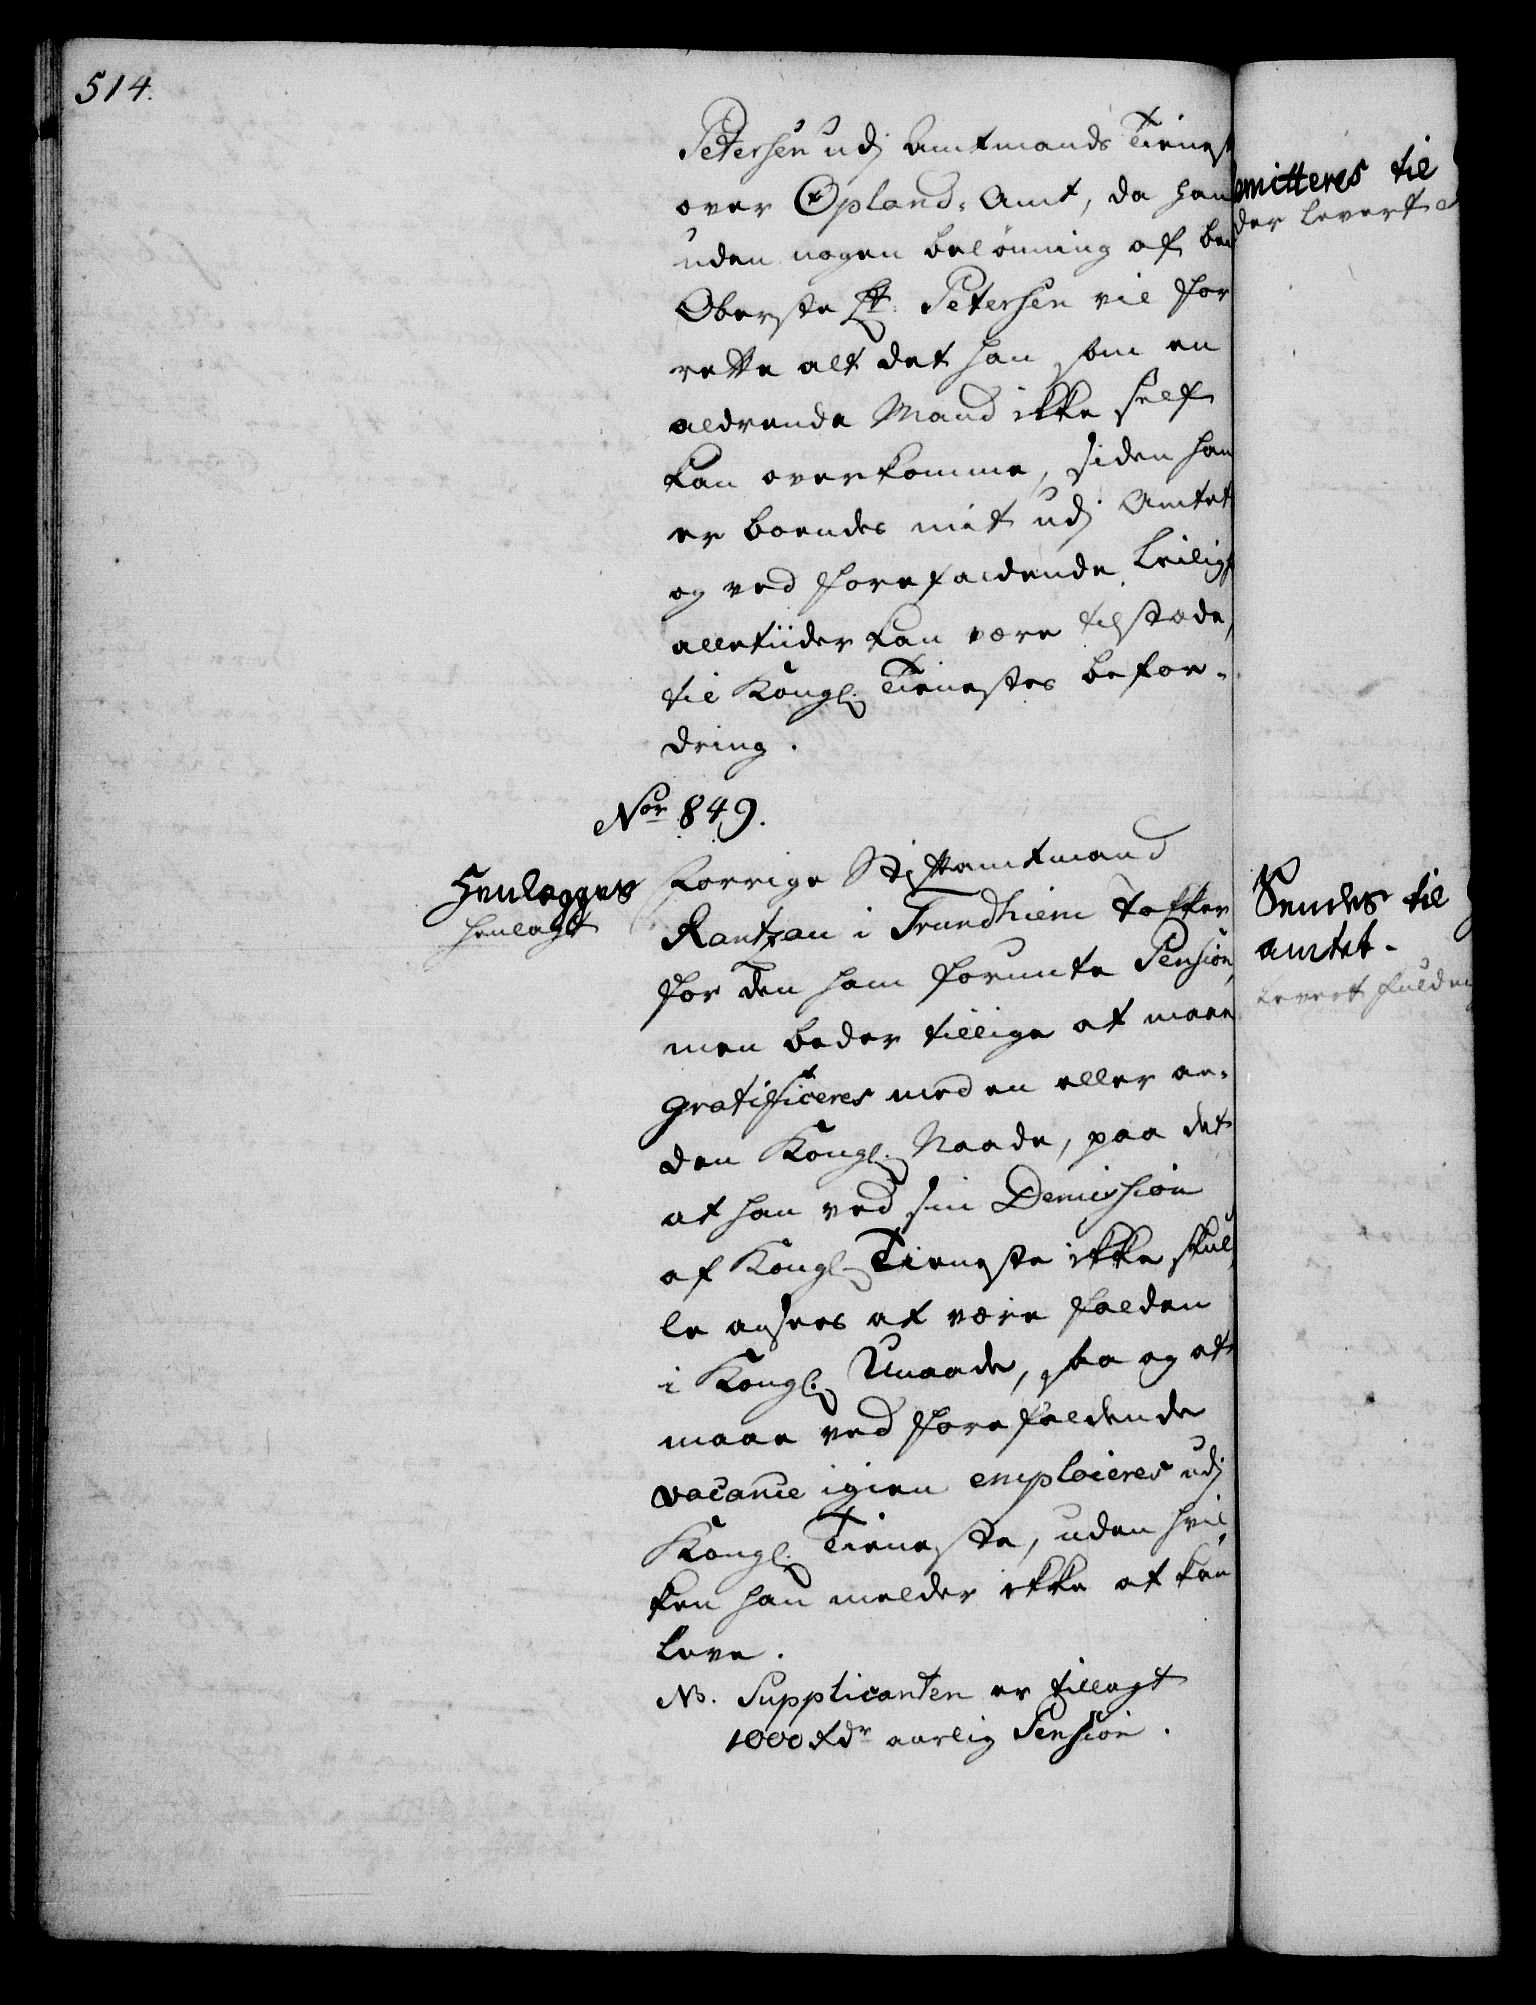 514.
Petersen udj Amtmands Tienest
over Opland: Amt, da han
uden nogen belønning af be
Oberste Lt. Petersen vil for
rette alt det han som en
aldrende Mand ikke self
kan overkomme, siden han
er boendes mit udj Amtet
og ved forefaldende Leiligh
alletiider kan være tilstæde,
til Kongl. Tienestes befor-
dring.
No 849.
Henlegges
henlagt
Forrige Stiftamtmand
Rantzau i Trundhiem takker
for den ham forunte Pension,
men beder tillige at maae
gratificeres med en eller an-
den Kongl. Naade, paa det
at han ved sin Demission
af Kongl. Tieneste ikke skul
le ansees at være falden
i Kongl. Unaade, saa og at
maae ved forefaldende
vacance igien emploieres udj
Kongl. Tieneste, uden hvil
ken han melder ikke at kan
leve.
NB. Supplicanten er tillagt
1000 Rdr aarlig Pension.
mitteres til
der levert
Sendes til
amtet.
Levert